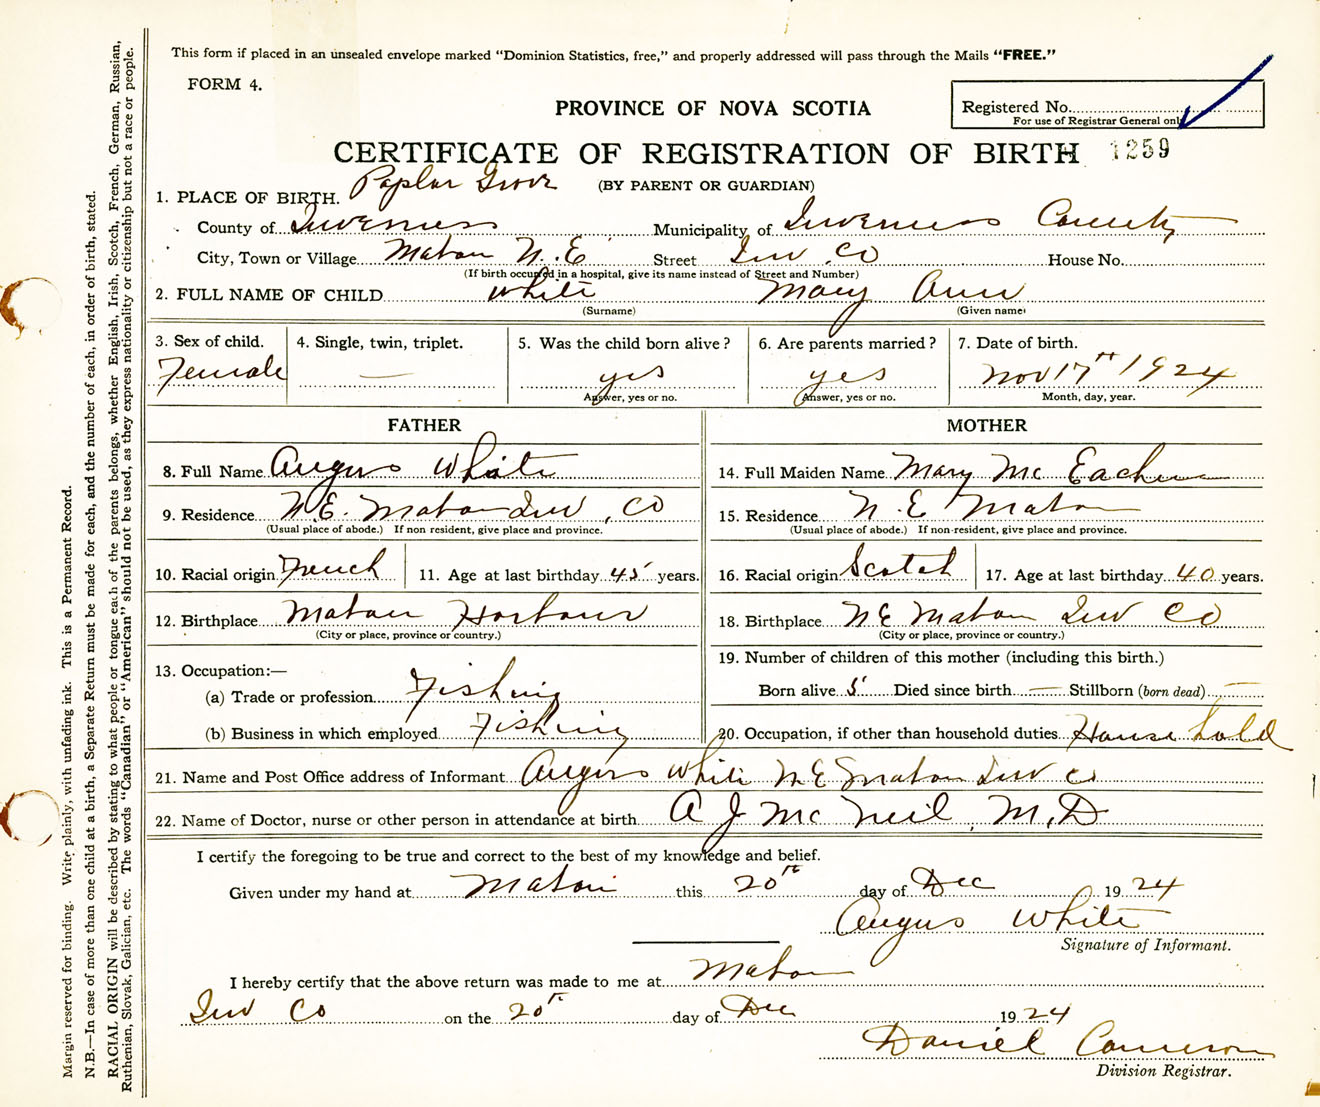 This form if placed in an unsealed envelope marked "Dominion Statistics, free," and properly addressed will pass through the Mails "FREE."
FORM 4.
PROVINCE OF NOVA SCOTIA
Registered No.
For use of Registrar General only
CERTIFICATE OF REGISTRATION OF BIRTH 1259
(BY PARENT OR GUARDIAN)
1. PLACE OF BIRTH. Poplar Grove
County of Inverness Municipality of Inverness County
City, Town or Village Mabou N.E Street Inv. Co House No.
(If birth occurred in a hospital, give its name instead of Street and Number)
2. FULL NAME OF CHILD White Mary Ann
(Surname) (Given name)
3. Sex of child. 4. Single, twin, triplet. 5. Was the child born alive? 6. Are parents married? 7. Date of birth.
Female — yes yes Nov 17th 1924
Answer, yes or no. Answer, yes or no. Month, day, year.
FATHER MOTHER
8. Full Name Angus White 14. Full Maiden Name Mary McEachen
9. Residence N.E. Mabou Inv, CO 15. Residence N.E Mabou
(Usual place of abode.) If non resident, give place and province. (Usual place of abode.) If non-resident, give place and province.
10. Racial origin French 11. Age at last birthday 45 years. 16. Racial origin Scotch 17. Age at last birthday 40 years.
12. Birthplace Mabou Harbour 18. Birthplace NE Mabou Inv CO
(City or place, province or country.) (City or place, province or country.)
13. Occupation:— 19. Number of children of this mother (including this birth.)
(a) Trade or profession Fishing Born alive 5 Died since birth — Stillborn (born dead) —
(b) Business in which employed Fishing 20. Occupation, if other than household duties House hold
21. Name and Post Office address of Informant Angus White N E Mabou Inv Co
22. Name of Doctor, nurse or other person in attendance at birth A J McNeil, M.D
I certify the foregoing to be true and correct to the best of my knowledge and belief.
Given under my hand at Mabou this 20th day of Dec 1924
Angus White
Signature of Informant.
I hereby certify that the above return was made to me at Mabou
Inv Co on the 20th day of Dec 1924
Daniel Cameron
Division Registrar.
Margin reserved for binding. Write plainly, with unfading ink. This is a Permanent Record.
N.B.—In case of more than one child at a birth, a Separate Return must be made for each, and the number of each, in order of birth, stated.
RACIAL ORIGIN will be described by stating to what people or tongue each of the parents belongs, whether English, Irish, Scotch, French, German, Russian,
Ruthenian, Slovak, Galician, etc. The words "Canadian" or "American" should not be used, as they express nationality or citizenship but not a race or people.